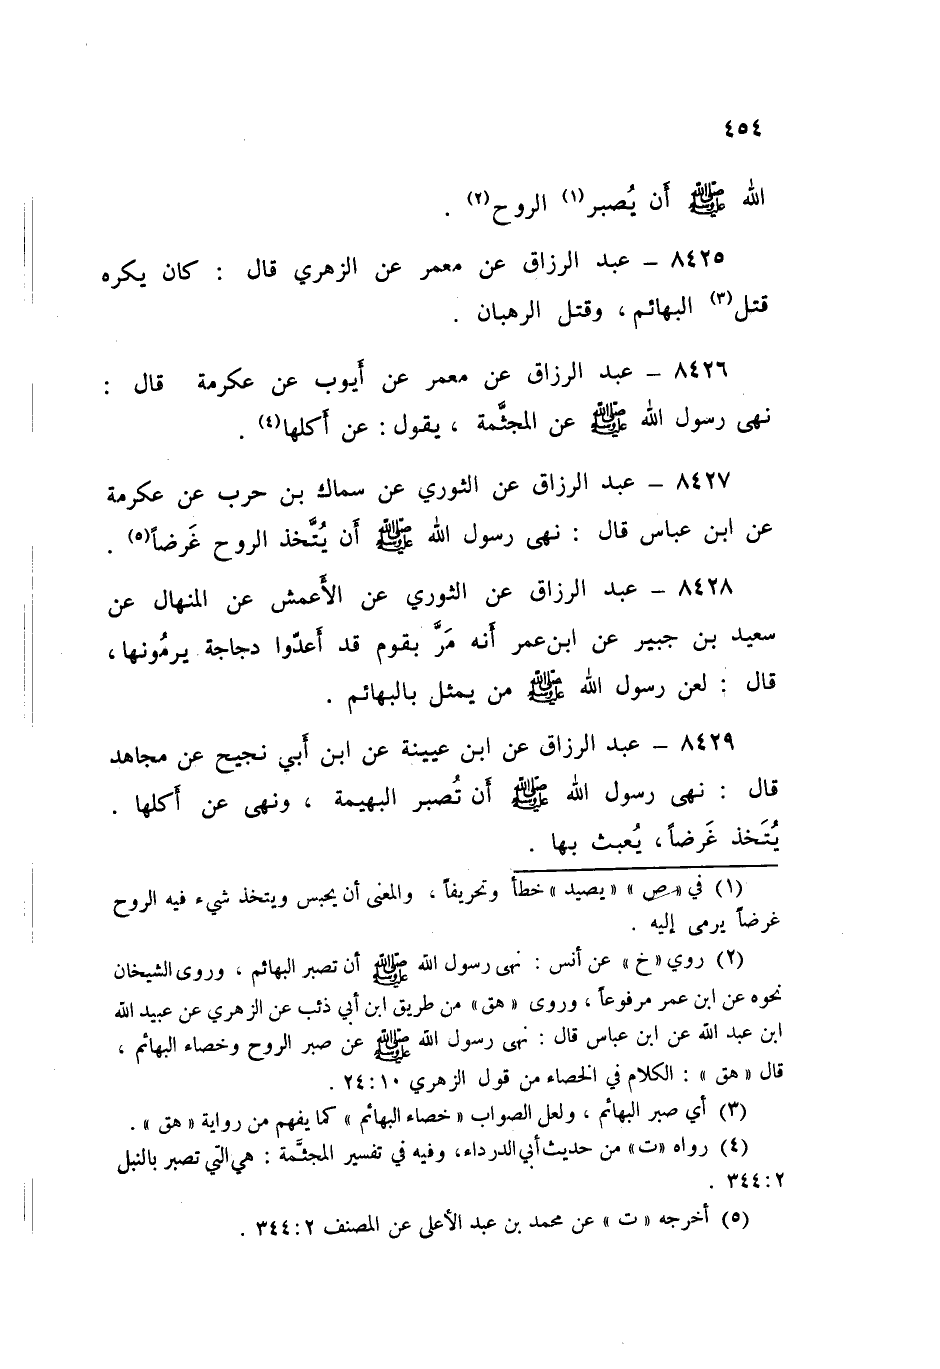 ٤٥٤
الله ﷺ أن يُصبر(١) الروح(٢) .
٨٤٢٥ – عبد الرزاق عن معمر عن الزهري قال : كان يكره
قتل(٣) البهائم ، وقتل الرهبان .
٨٤٢٦ – عبد الرزاق عن معمر عن أيوب عن عكرمة قال :
نهى رسول الله ﷺ عن المجثَّمة ، يقول : عن أكلها(٤) .
٨٤٢٧ – عبد الرزاق عن الثوري عن سماك بن حرب عن عكرمة
عن ابن عباس قال : نهى رسول الله ﷺ أن يُتَّخذ الروح غَرضاً(٥) .
٨٤٢٨ – عبد الرزاق عن الثوري عن الأعمش عن المنهال عن
سعيد بن جبير عن ابن عمر أنه مَرَّ بقوم قد أعدّوا دجاجة يرمُونها ،
قال : لعن رسول الله ﷺ من يمثل بالبهائم .
٨٤٢٩ – عبد الرزاق عن ابن عيينة عن ابن أبي نجيح عن مجاهد
قال : نهى رسول الله ﷺ أن تُصبر البهيمة ، ونهى عن أكلها .
يُتَخذ غَرضاً ، يُعبث بها .
(١) في «ص» «يصيد» خطأ وتحريفاً ، والمعنى أن يحبس ويتخذ شيء فيه الروح
غرضاً يرمى إليه .
(٢) روي «خ» عن أنس : نهى رسول الله ﷺ أن تصبر البهائم ، وروى الشيخان
نحوه عن ابن عمر مرفوعاً ، وروى «هق» من طريق ابن أبي ذئب عن الزهري عن عبيد الله
ابن عبد الله عن ابن عباس قال : نهى رسول الله ﷺ عن صبر الروح وخصاء البهائم ،
قال «هق» : الكلام في الخصاء من قول الزهري ١٠:٢٤ .
(٣) أي صبر البهائم ، ولعل الصواب «خصاء البهائم» كما يفهم من رواية «هق» .
(٤) رواه «ت» من حديث أبي الدرداء، وفيه في تفسير المجثَّمة : هي التي تصبر بالنبل
٢:٣٤٤ .
(٥) أخرجه «ت» عن محمد بن عبد الأعلى عن المصنف ٢:٣٤٤ .